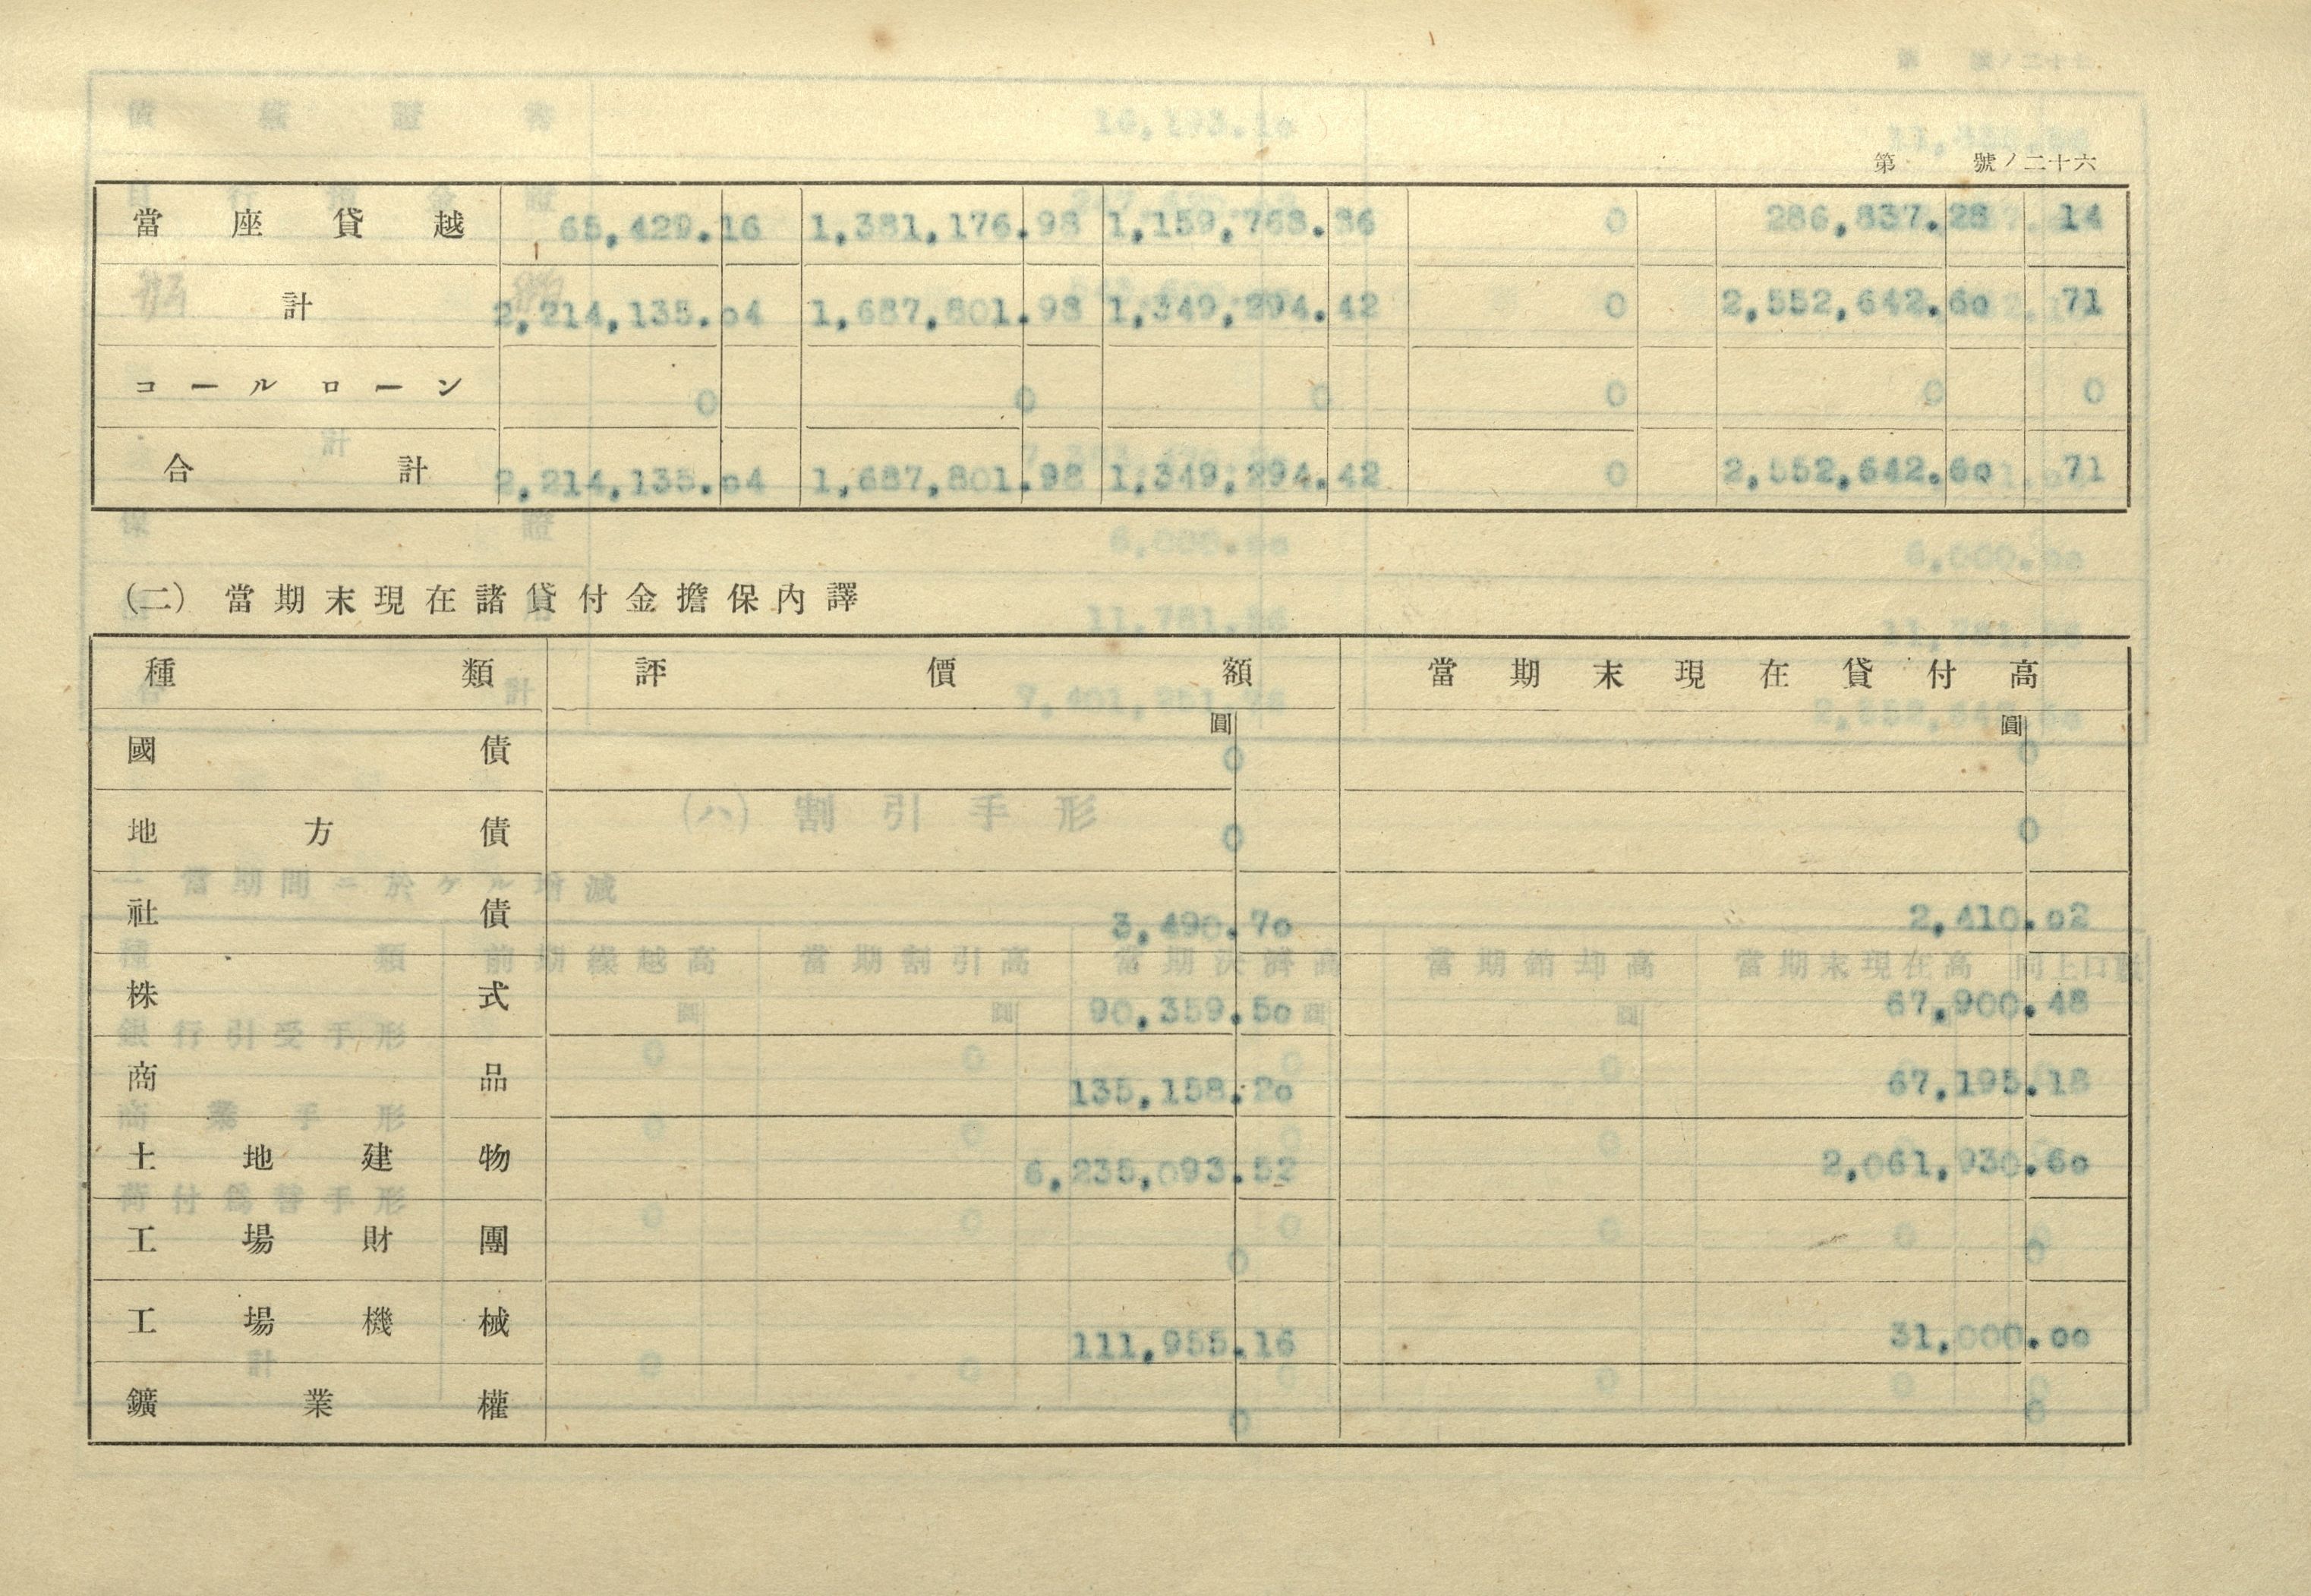 第 號ノ二十六
當座貸越 65,429.16 1,381,176.98 1,159,768.86 0 286,837.28 14
計 2,214,135.04 1,687,801.98 1,349,294.42 0 2,552,642.60 71
コールローン 0 0 0 0 0 0
合計 2,214,135.04 1,687,801.98 1,349,294.42 0 2,552,642.60 71
(二) 當期末現在諸貸付金擔保內譯
種類 評價額 當期末現在貸付高
圓 圓
國債 0 0
地方債 0 0
社債 3,490.70 2,410.02
株式 90,359.50 67,900.48
商品 135,158.20 67,195.18
土地建物 6,235,093.52 2,061,930.60
工場財團 0 0
工場機械 111,955.16 31,000.00
鑛業權 0 0